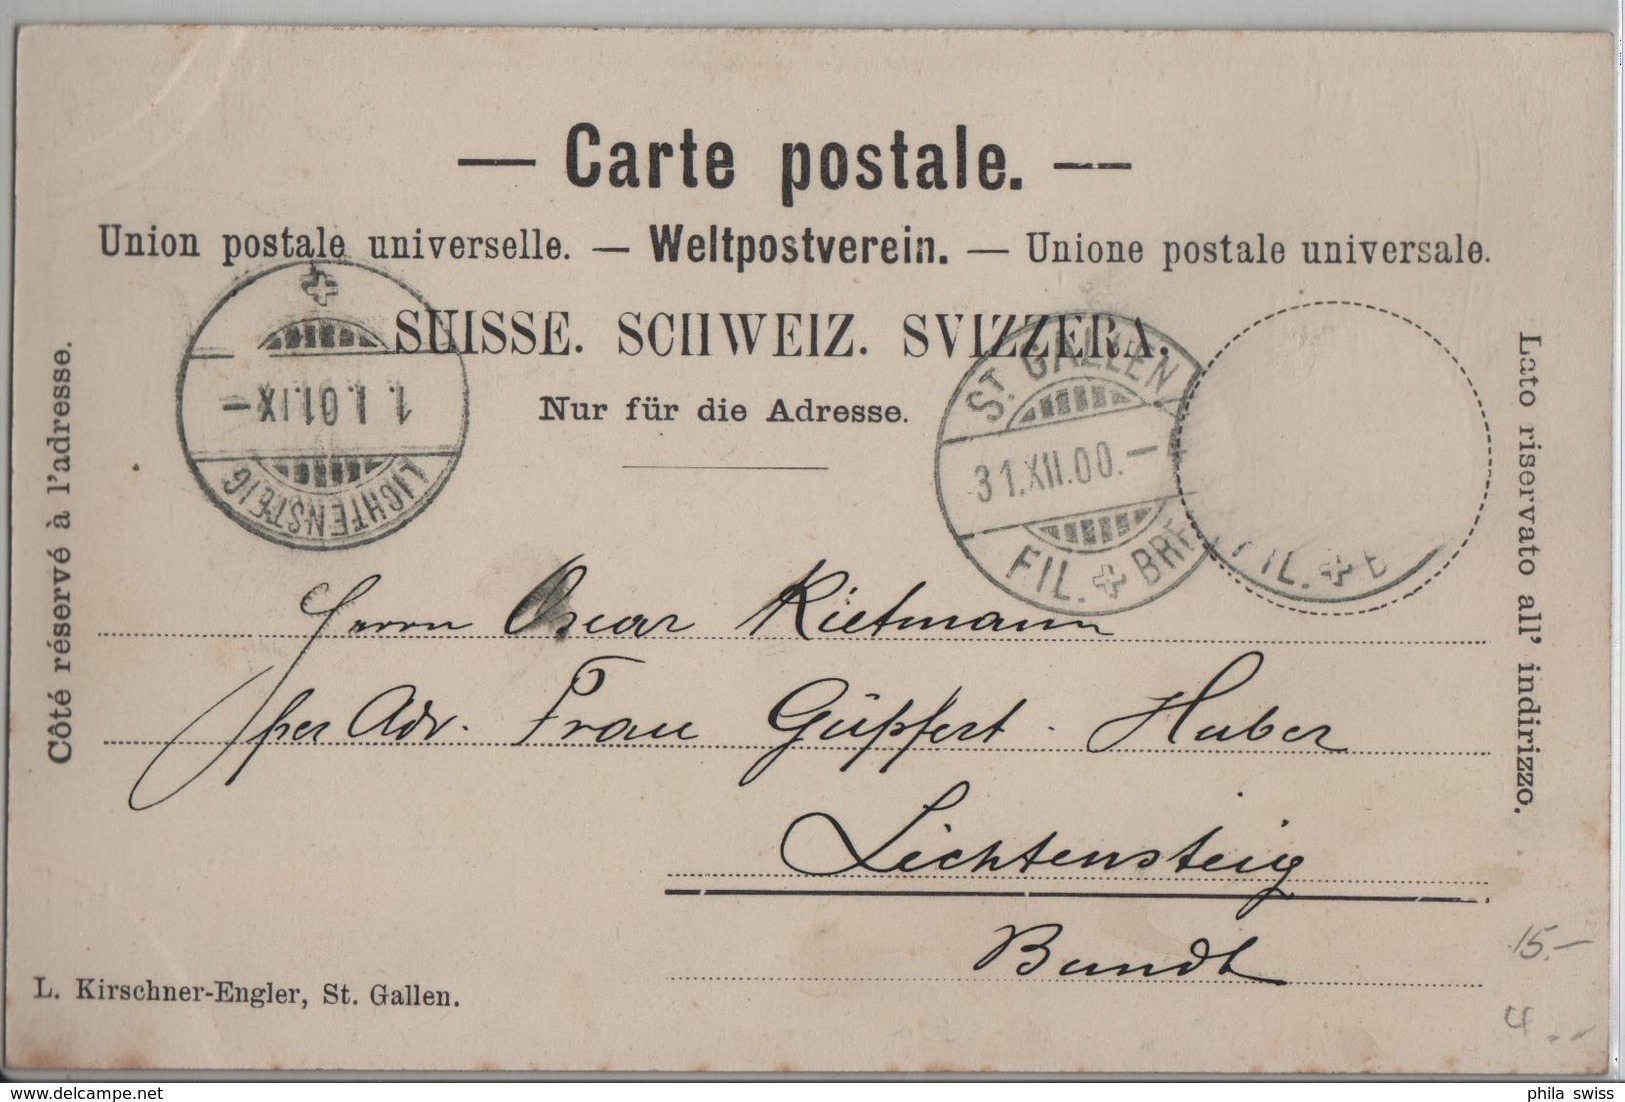 — Carte postale. —
Union postale universelle. — Weltpostverein. — Unione postale universale.
SUISSE. SCHWEIZ. SVIZZERA.
Nur für die Adresse.
Côté réservé à l'adresse.
Lato riservato all' indirizzo.
1.I.01.IX–
LICHTENSTEIG
ST. GALLEN
31.XII.00.–
FIL. BRF
FIL. B
Herrn Oscar Rietmann
per Adr. Frau Güpfert-Huber
Lichtensteig
Bundt
15.–
4
L. Kirschner-Engler, St. Gallen.
phila swiss